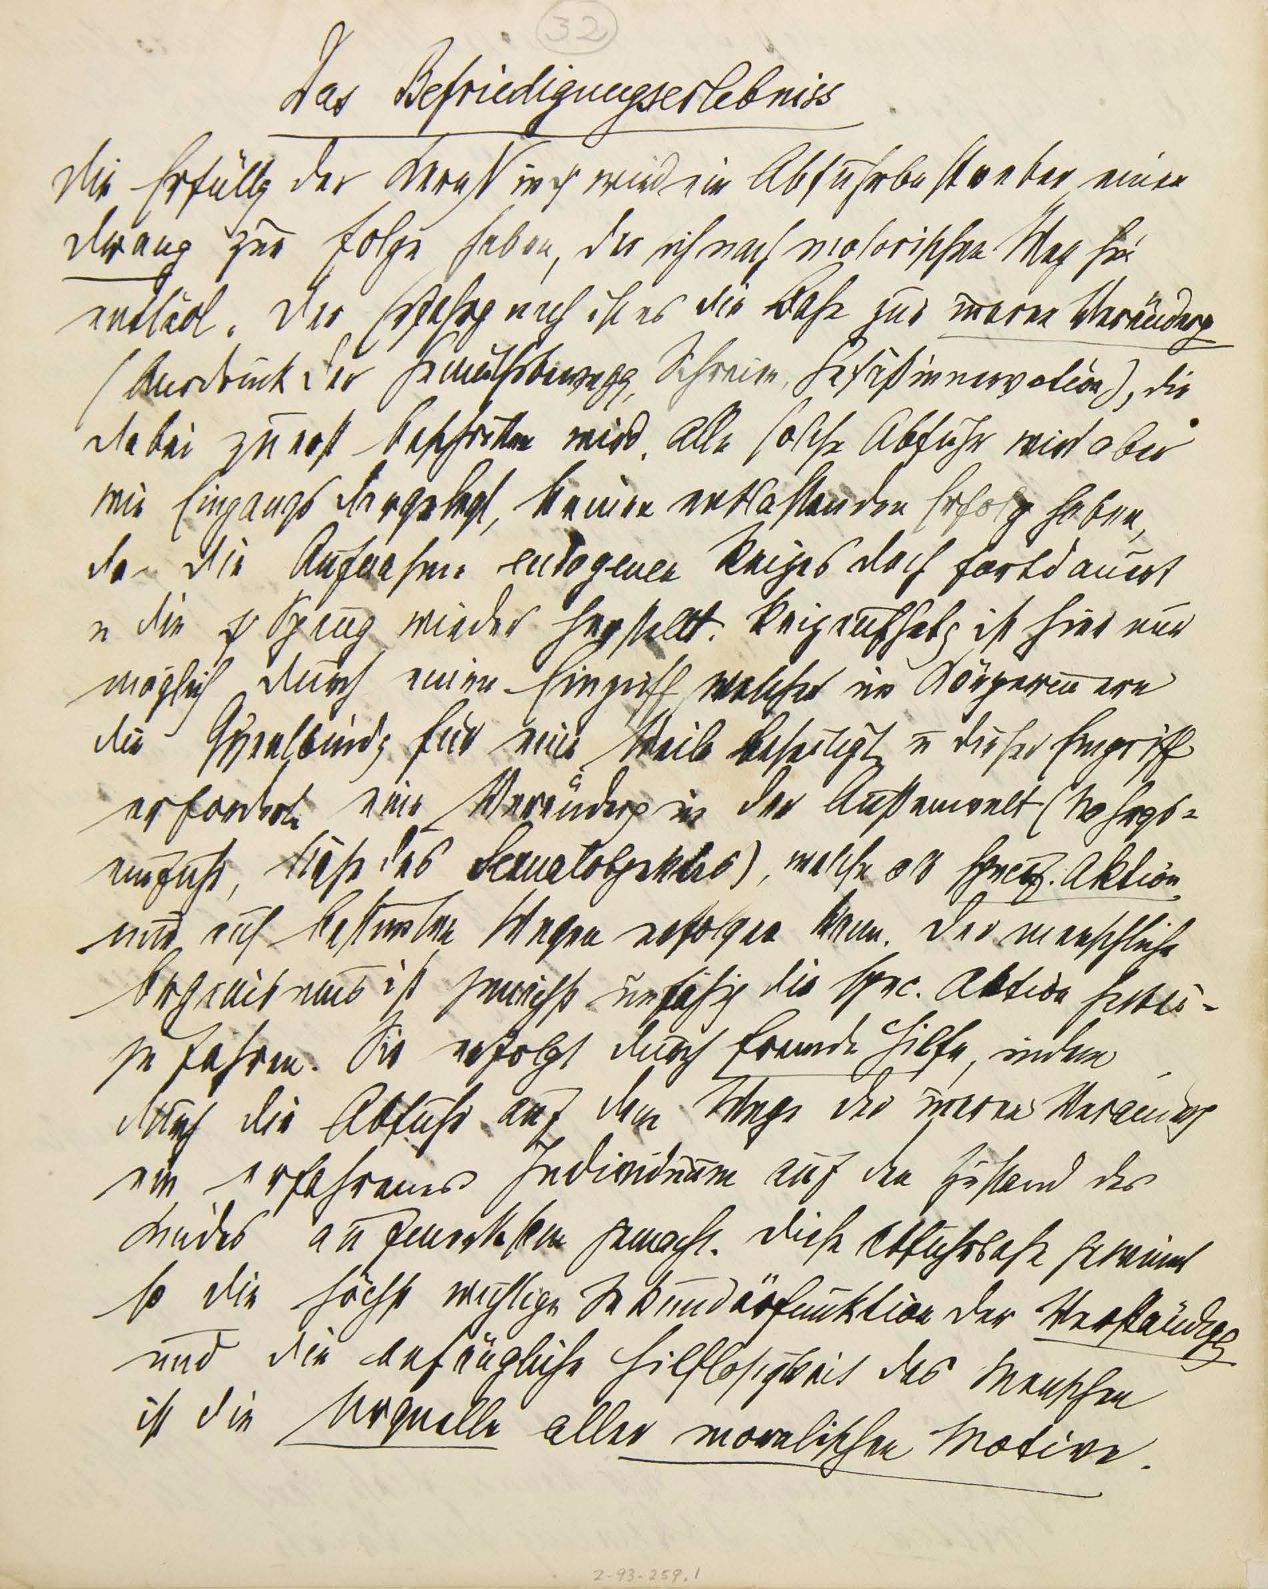 32
Das Befriedigungserlebniss
Die Erfüllg der Kerne in ψ wird ein Abfuhrbestreben, einen
Drang zur Folge haben, der sich nach motorischem Weg hin
entlädt. Der Erfahrg nach ist es die Bahn zur inneren Veränderg
(Ausdruck der Gemüthsbewegg, Schreien, Gefäßinnervation), die
dabei zuerst beschritten wird. Alle solche Abfuhr wird aber
wie Eingangs dargelegt, keinen entlastenden Erfolg haben,
da die Aufnahme endogenen Reizes doch fortdauert
u die ψ Spang wieder herstellt. Reizaufhebg ist hier nur
möglich durch einen Eingriff welcher im Körperinnern
die Qἠentbindg für eine Weile beseitigt u dieser Eingriff
erfordert eine Veränderg in der Außenwelt (Nahrgs-
zufuhr, Nähe des Sexualobjektes), welche als specif. Aktion
nur auf bestimmten Wegen erfolgen kann. Der menschliche
Organismus ist zunächst unfähig die spec. Aktion herbei-
zuführen. Sie erfolgt durch fremde Hilfe, indem
durch die Abfuhr auf dem Wege der inneren Veränderg
ein erfahrenes Individuum auf den Zustand des
Kindes aufmerksam gemacht. Diese Abfuhrbahn gewinnt
so die höchst wichtige Sekundärfunktion der Verständigg
und die anfängliche Hilflosigkeit des Menschen
ist die Urquelle aller moralischen Motive.
2-93-259.1